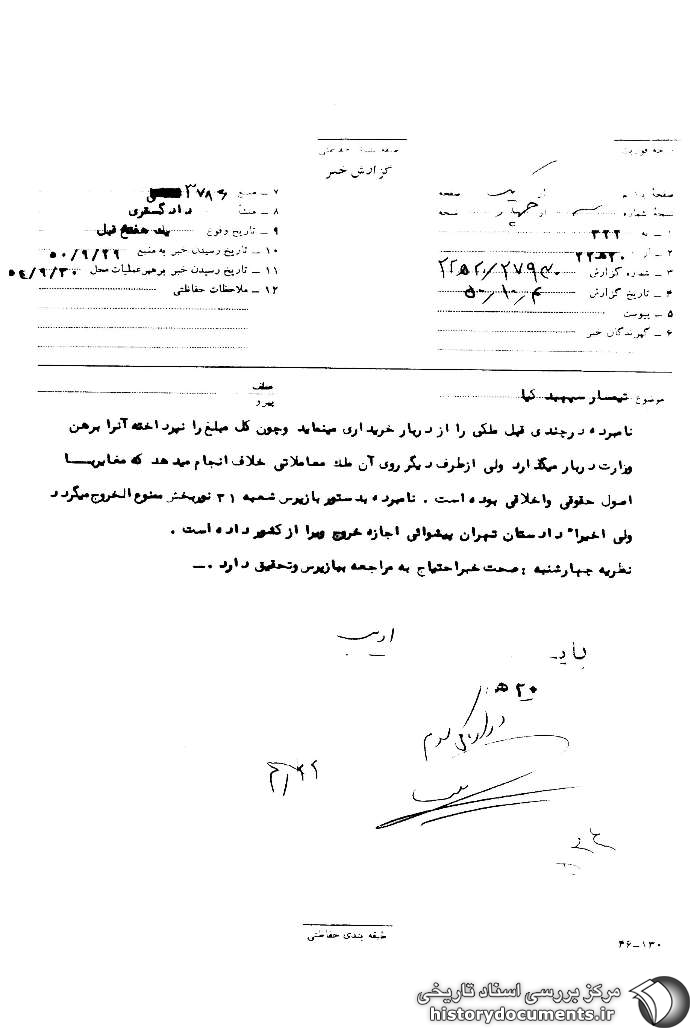 طبقه بندی حفاظتی
گزارش خبر
صفحه یک از یک صفحه
نسخه شماره سه از چهار نسخه
۱ ـ به ۳۲۲
۲ ـ از ۲۰ﻫ۲۲
۳ ـ شماره گزارش
۴ ـ تاریخ گزارش
۵ ـ پیوست
۶ ـ گیرندگان خبر
۷ ـ منبع
۸ ـ منشأ دادگستری
۹ ـ تاریخ وقوع یک هفته قبل
۱۰ ـ تاریخ رسیدن خبر به منبع ۵۰/۹/۲۹
۱۱ ـ تاریخ رسیدن خبر برهبر عملیات محل
۱۲ ـ ملاحظات حفاظتی
موضوع تیمسار سپهبد کیا
عطف
پیرو
نامبرده درچندی قبل ملکی را از دربار خریداری مینماید وچون کل مبلغ را نپرداخته آنرا برهن
وزارت دربار میگذارد ولی ازطرف دیگر روی آن ملك معاملاتی خلاف انجام میدهد که مغایر با
اصول حقوقی واخلاقی بوده است . نامبرده بدستور بازپرس شعبه ۳۱ نوربخش ممنوع الخروج میگردد
ولی اخیرا" دادستان تهران پیشوائی اجازه خروج ویرا از کشور داده است .
نظریه چهارشنبه : صحت خبر احتیاج به مراجعه ببازپرس وتحقیق دارد .ـ
ادیب
۲۰ﻫ
طبقه بندی حفاظتی
۴۶-۱۳۰
مرکز بررسی اسناد تاریخی
historydocuments.ir